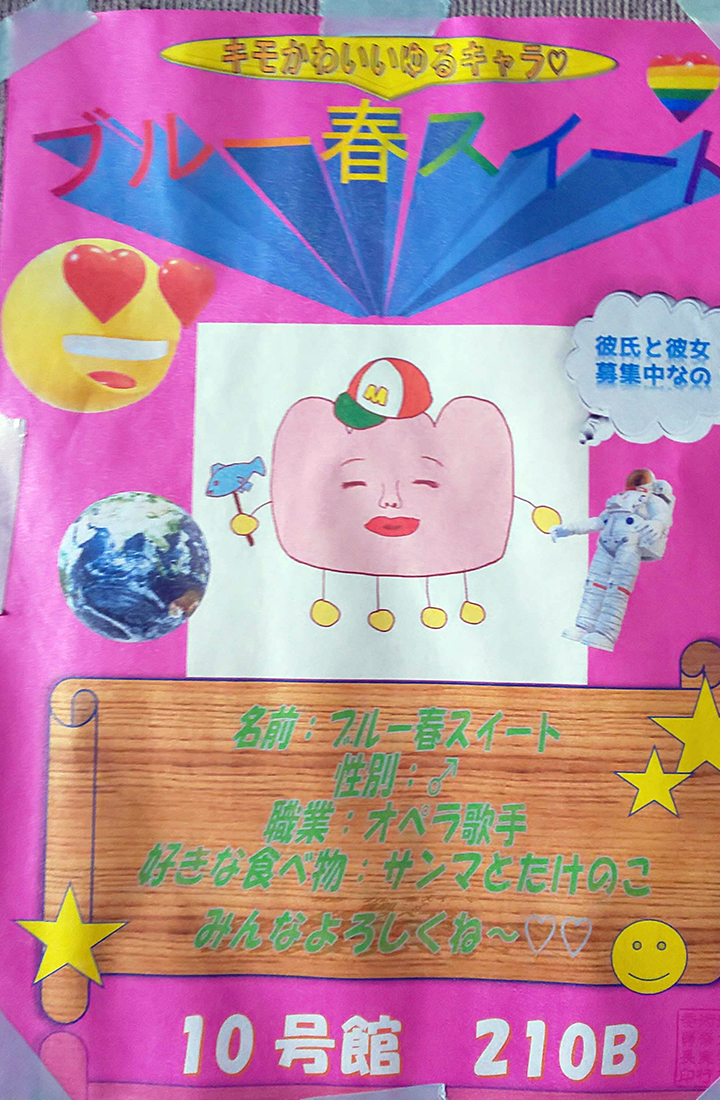 キモかわいいゆるキャラ♡
ブルー春スイート
彼氏と彼女
募集中なの
M
名前：ブルー春スイート
性別：♂
職業：オペラ歌手
好きな食べ物：サンマとたけのこ
みんなよろしくね～♡♡
10号館 210B